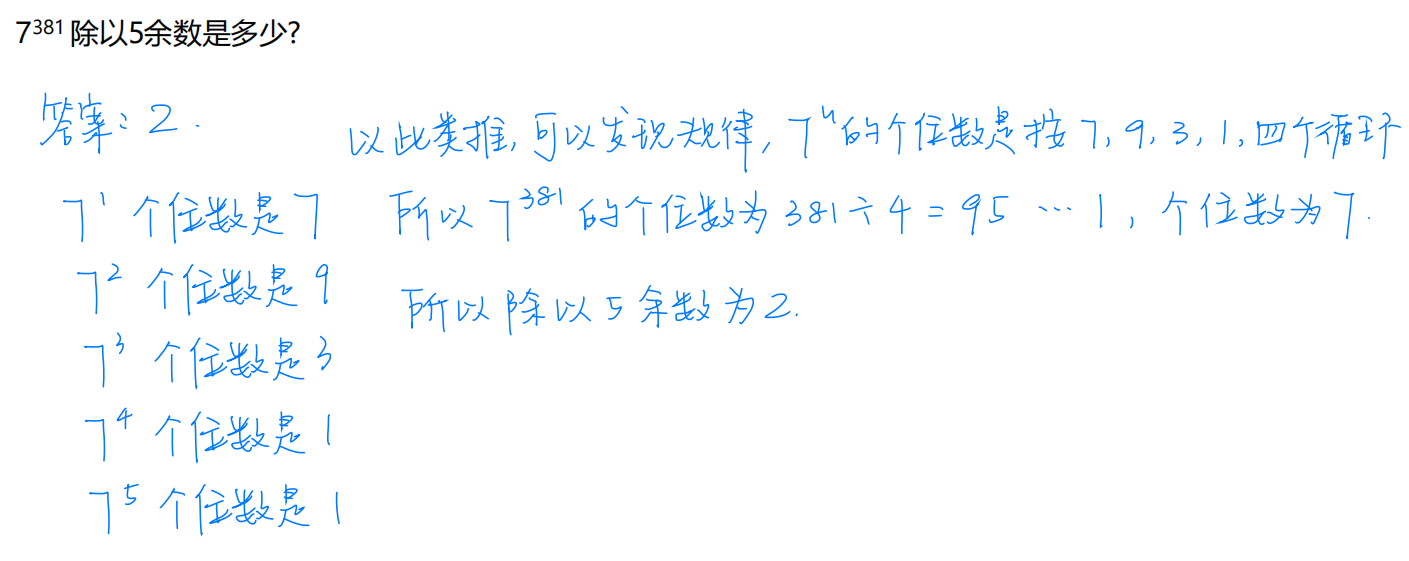 7³⁸¹ 除以5余数是多少?
答案：2.
7¹ 个位数是7
7² 个位数是9
7³ 个位数是3
7⁴ 个位数是1
7⁵ 个位数是1
以此类推，可以发现规律，7ⁿ的个位数是按7,9,3,1,四个循环
所以7³⁸¹的个位数为381÷4=95 … 1，个位数为7.
所以除以5余数为2.